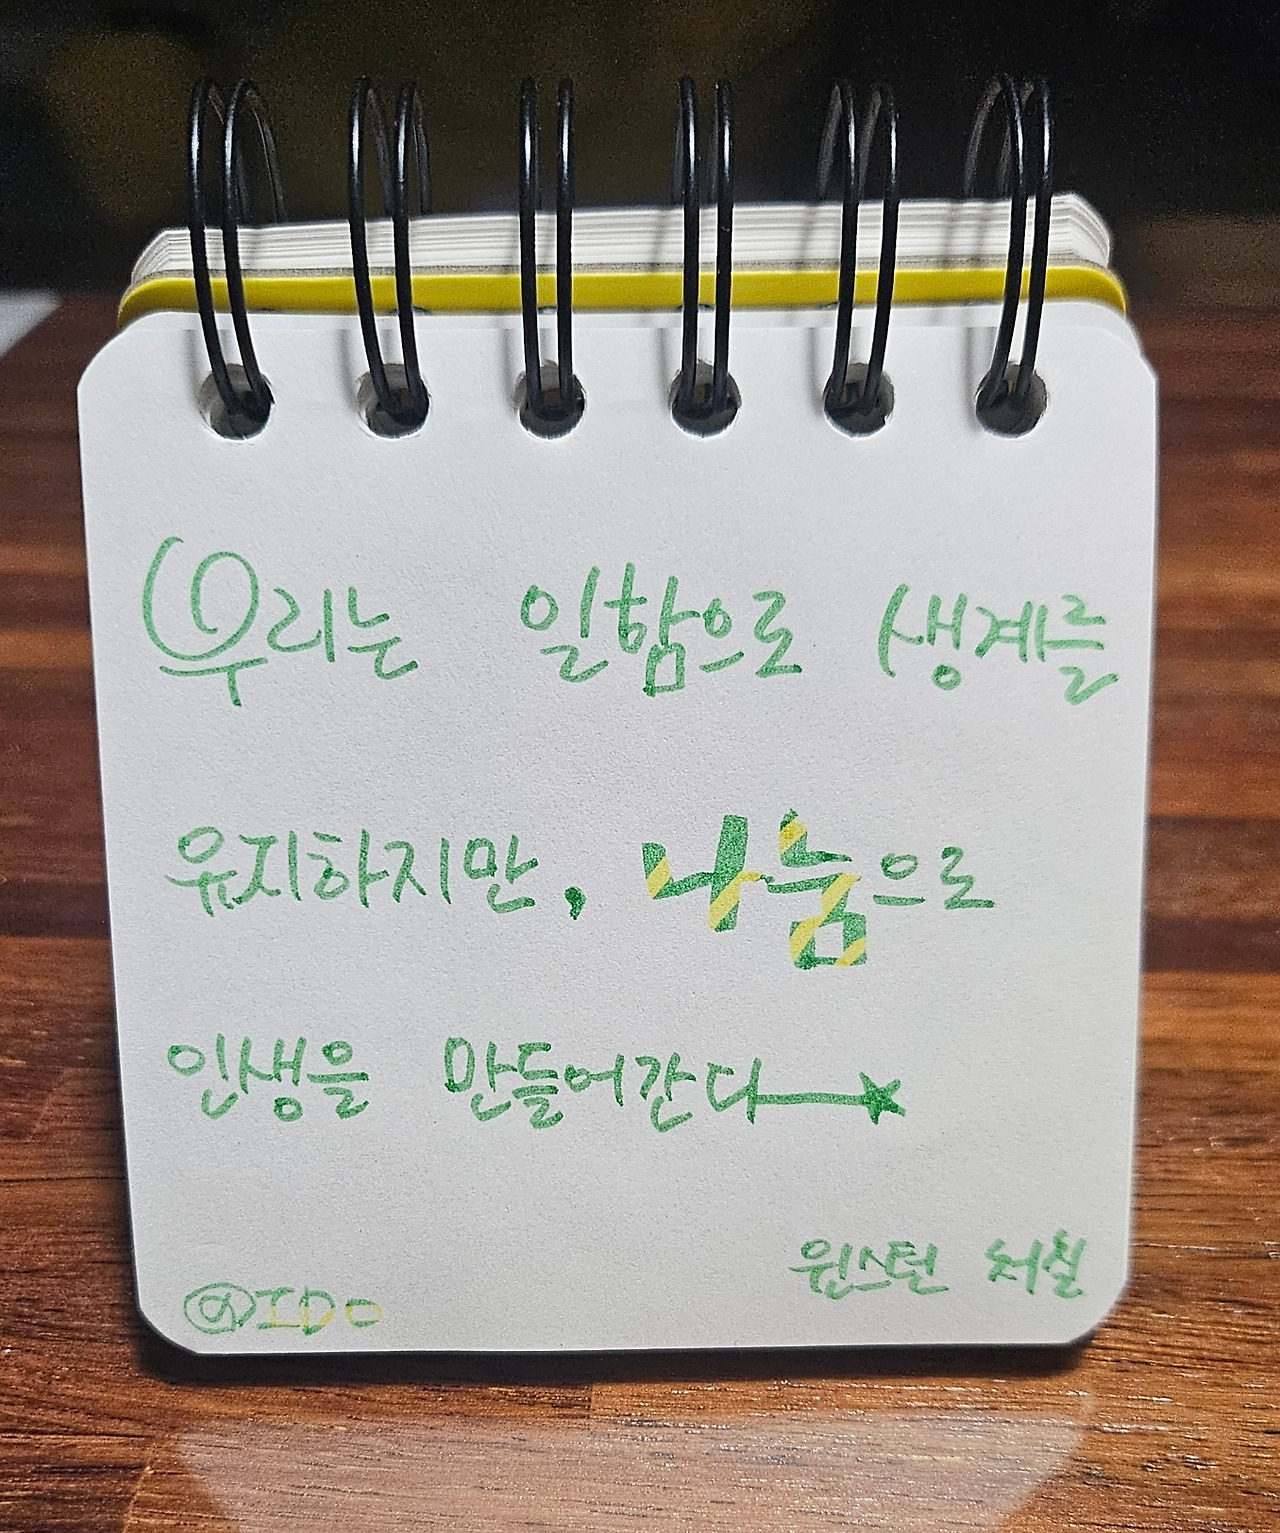 우리는 일함으로 생계를
유지하지만, 나눔으로
인생을 만들어간다
윈스턴 처칠
@IDO